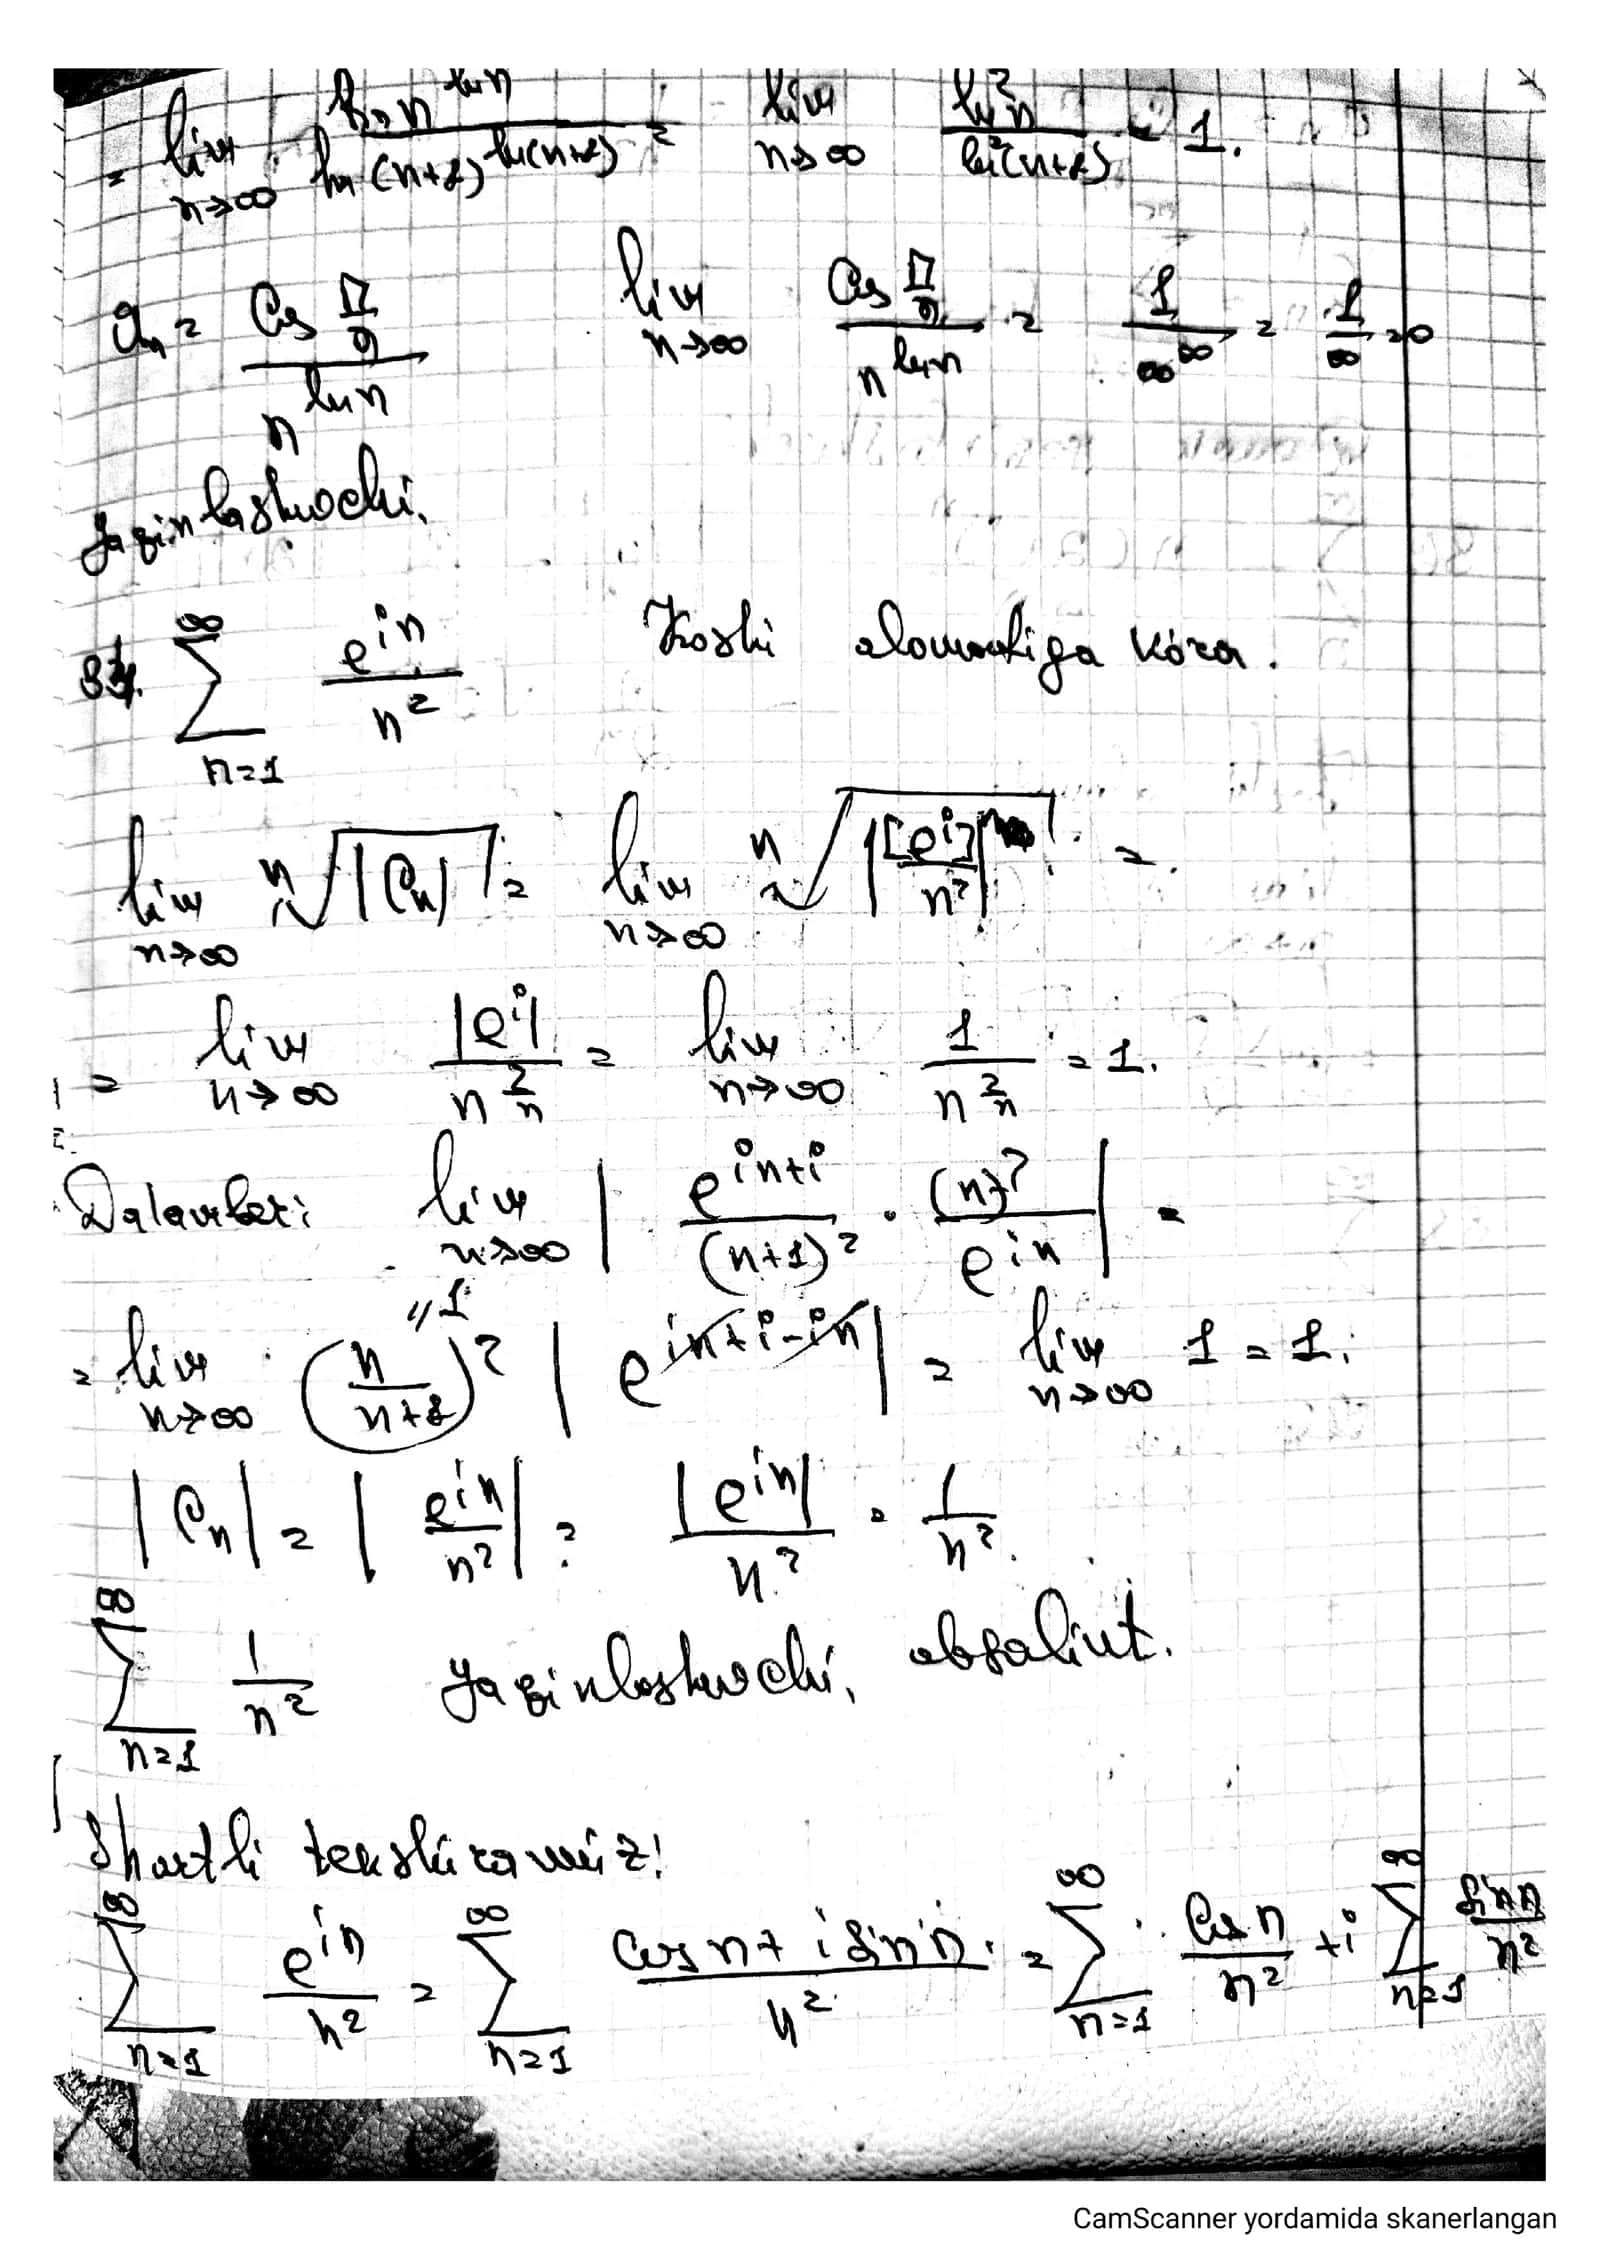 = lim n→∞ ln n^(ln n) / ln(n+1)^(ln(n+1)) = lim n→∞ ln²n / ln²(n+1) = 1.
a_n = cos(π/n) / n^(ln n)   lim n→∞ cos(π/n) / n^(ln n) = 1/∞^∞ = 1/∞ = 0
Yaqinlashuvchi.
∑_{n=1}^{∞} e^{in} / n²   Koshi alomatiga ko'ra.
lim n→∞ ⁿ√|C_n| = lim n→∞ ⁿ√|[e^i]^n / n²| =
= lim n→∞ |e^i| / n^{2/n} = lim n→∞ 1 / n^{2/n} = 1.
Dalamber: lim n→∞ | e^{in+i} / (n+1)² · (n)² / e^{in} | =
= lim n→∞ (n/(n+1))² "1 | e^{in+i-in} | = lim n→∞ 1 = 1.
|C_n| = | e^{in} / n² | = |e^{in}| / n² = 1/n².
∑_{n=1}^{∞} 1/n² yaqinlashuvchi, absaliut.
Shartli tekshiramiz!
∑_{n=1}^{∞} e^{in} / n² = ∑_{n=1}^{∞} (cos n + i sin n) / n² = ∑_{n=1}^{∞} cos n / n² + i ∑_{n=1}^{∞} sin n / n²
CamScanner yordamida skanerlangan